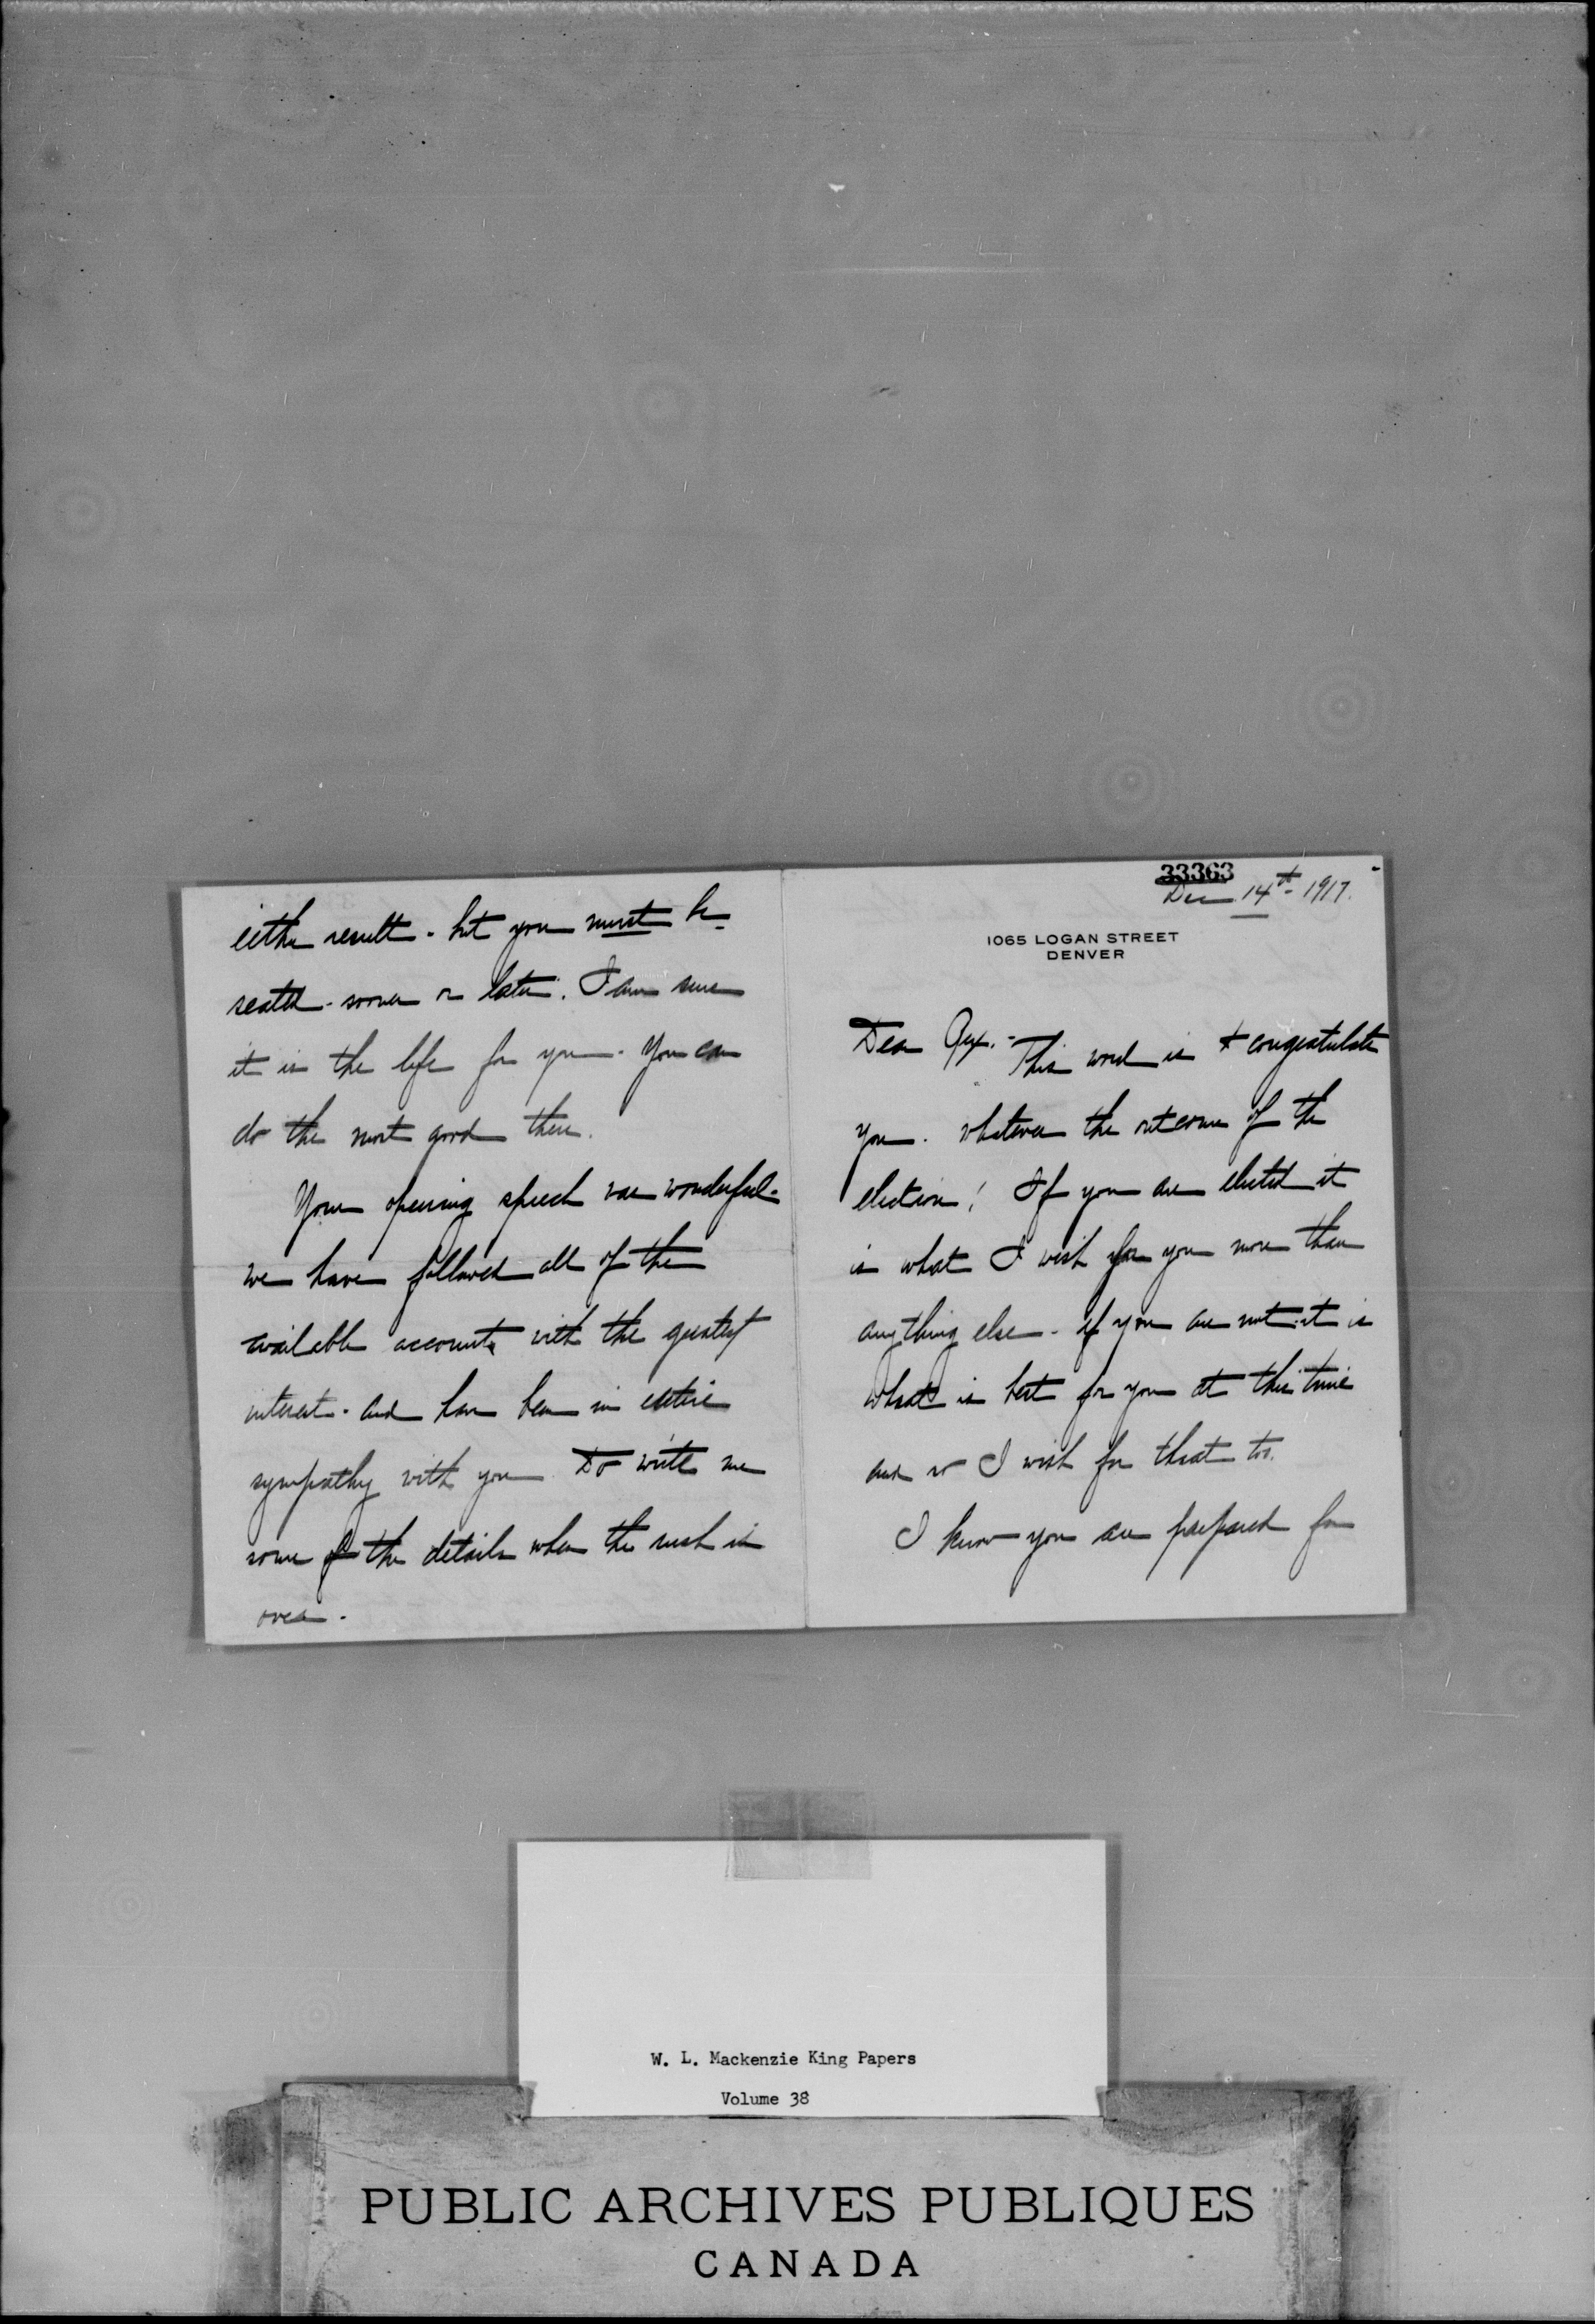 33363
Dec 14th 1917.
1065 LOGAN STREET
DENVER
Dear Rex. - This word is to congratulate
you. whatever the outcome of the
election! If you are elected it
is what I wish for you more than
anything else - if you are not it is
what is best for you at this time
and so I wish for that too.
I know you are prepared for
either result - but you must be
seated - sooner or later. I am sure
it is the life for you - You can
do the most good there.
Your opening speech was wonderful -
we have followed all of the
available accounts with the greatest
interest - and have been in entire
sympathy with you Do write me
some of the details when the rush is
over -
W. L. Mackenzie King Papers
Volume 38
PUBLIC ARCHIVES PUBLIQUES
CANADA